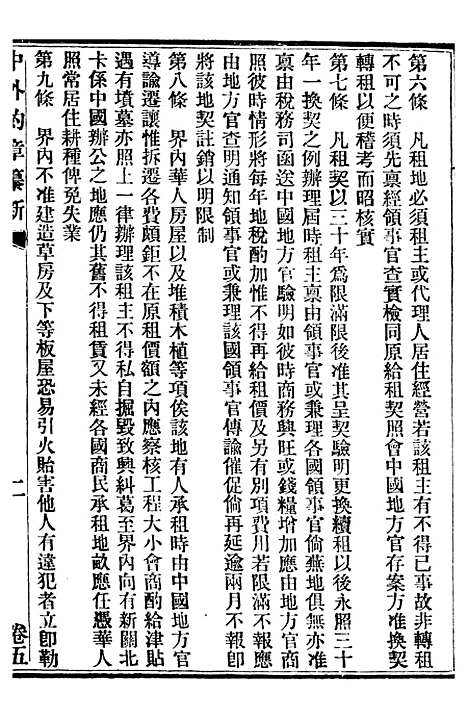 第六條　凡租地必須租主或代理人居住經營若該租主有不得已事故非轉租
不可之時須先稟經領事官查實檢同原給租契照會中國地方官存案方准換契
轉租以便稽考而昭核實
第七條　凡租契以三十年爲限滿限後准其呈契驗明更換續租以後永照三十
年一換契之例辦理屆時租主稟由領事官或兼理各國領事官倘蕪地俱無亦准
稟由稅務司函送中國地方官驗明如彼時商務興旺或錢糧增加應由地方官商
照彼時情形將每年地稅酌加惟不得再給租價及另別項費用若限滿不報應
由地方官查明通知領事官或兼理該國領事官傳諭催促倘再延逾兩月不報卽
將該地契註銷以明限制
第八條　界內華人房屋以及堆積木植等項俟該地有人承租時由中國地方官
導諭遷讓惟拆遷各費頗鉅不在原租價額之內應察核工程大小會商酌給津貼
遇有墳墓亦照上一律辦理該租主不得私自掘毀致興糾葛至界內向有新關北
卡係中國辦公之地應仍其舊不得租賃又未經各國商民承租地畝應任憑華人
照常居住耕種俾免失業
第九條　界內不准建造草房及下等板屋恐易引火貽害他人有違犯者立卽勒
中外約章纂新
二
卷五